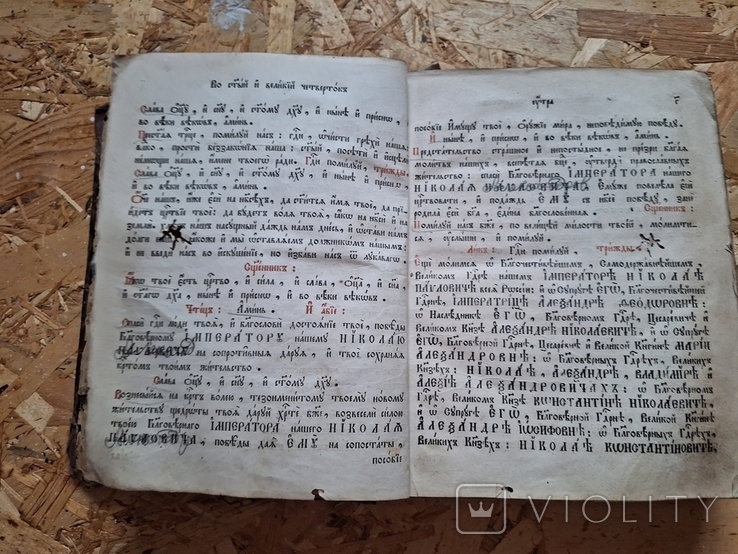 Во ст҃ы́й и҆ вели́кїй четверто́къ
Сла́ва ѻ҆ц҃ꙋ̀, и҆ сн҃ꙋ, и҆ ст҃о́мꙋ дх҃ꙋ, и҆ ны́нѣ и҆ при́снѡ, и҆
во вѣ́ки вѣкѡ́въ, а҆ми́нь.
Прест҃а́ѧ трⷪ҇це, поми́лꙋй на́съ: гдⷭ҇и, ѡ҆чи́сти грѣхѝ на́шѧ:
влⷣко, простѝ беззакѡ́нїѧ на̑ша: ст҃ы́й, посѣтѝ и҆ и҆сцѣлѝ
не́мѡщи на́шѧ, и҆́мене твоегѡ̀ ра́ди. Гдⷭ҇и поми́лꙋй, три́жды.
Сла́ва ѻ҆ц҃ꙋ̀, и҆ сн҃ꙋ, и҆ ст҃о́мꙋ дх҃ꙋ, и҆ ны́нѣ и҆ при́снѡ,
и҆ во вѣ́ки вѣкѡ́въ, а҆ми́нь.
Ѻ҆́ч҃е на́шъ, и҆́же є҆сѝ на нб҃сѣ́хъ, да ст҃и́тсѧ и҆́мѧ твоѐ, да прї-
и́детъ црⷭ҇твїе твоѐ: да бꙋ́детъ во́лѧ твоѧ̀, ꙗ҆́кѡ на нб҃сѝ и҆ на
землѝ. на́шъ насꙋ́щный да́ждь на́мъ дне́сь, и҆ ѡ҆ста́ви на́мъ
до́лги ꙗ҆́коже и҆ мы̀ ѡ҆ставлѧ́емъ должникѡ́мъ на́шымъ:
и҆ не введѝ на́съ во и҆скꙋше́нїе, но и҆зба́ви на́съ ѿ лꙋка́вагѡ.
Сщ҃е́нникъ:
Ꙗ҆́кѡ твоѐ є҆́сть црⷭ҇тво, и҆ си́ла, и҆ сла́ва, ѻ҆ц҃а̀, и҆ сн҃а,
и҆ ст҃а́гѡ дх҃а, ны́нѣ и҆ при́снѡ, и҆ во вѣ́ки вѣкѡ́въ.
Чте́цъ: А҆ми́нь. И҆ а҆́бїе:
Сп҃сѝ гдⷭ҇и лю́ди твоѧ̑, и҆ блгⷭ҇вѝ достоѧ́нїе твоѐ, побѣ̑ды
Бл҃говѣ́рномꙋ И҆МПЕРА́ТОРꙊ на́шемꙋ НІКОЛА́Ю
ПА́VЛОВИЧꙊ на сопроти̑вныѧ да́рꙋѧ, и҆ твоѐ сохранѧ́ѧ
крⷭ҇то́мъ твои́мъ жи́тельство.
Сла́ва ѻ҆ц҃ꙋ̀, и҆ сн҃ꙋ, и҆ ст҃о́мꙋ дх҃ꙋ.
Вознесы́йсѧ на крⷭ҇тъ во́лею, тезоимени́томꙋ твоемꙋ̀ но́вомꙋ
жи́тельствꙋ щедрѡ́ты твоѧ̑ да́рꙋй хрⷭ҇тѐ бж҃е, возвеселѝ си́лою
твое́ю Бл҃говѣ́рнаго И҆МПЕРА́ТОРА на́шего НІКОЛА́А
ПА́VЛОВИЧА, побѣ̑ды даѧ̀ Є҆МꙊ̀ на сопоста́ты,
посо́бїе
Оу҆́трᲂ г҃
посо́бїе и҆мꙋ́щꙋ твоѐ, ѻ҆рꙋ́жїе ми́ра, непобѣди́мꙋю побѣ́дꙋ.
И҆ ны́нѣ, и҆ при́снѡ, и҆ во вѣ́ки вѣкѡ́въ, а҆ми́нь.
Предста́тельство стра́шное и҆ непосты́дное, не пре́зри бл҃га́ѧ
моли́твъ на́шихъ, всепѣ́таѧ бцⷣе, ᲂу҆твердѝ правосла́вныхъ
жи́тельство: сп҃сѝ Бл҃говѣ́рнаго И҆МПЕРА́ТОРА на́шего
НІКОЛА́А ПА́VЛОВИЧА, Є҆мꙋ́же повелѣ́ла є҆сѝ
црⷭ҇твовати, и҆ пода́ждь Є҆МꙊ̀ съ нб҃сѐ побѣ́дꙋ, занѐ
родила̀ є҆сѝ бг҃а, є҆ди́на бл҃гослове́ннаѧ. Сщ҃е́нникъ:
Поми́лꙋй на́съ бж҃е, по вели́цѣй ми́лости твое́й, мо́лимтисѧ,
ᲂу҆слы́ши и҆ поми́лꙋй.
Ли́къ: Гдⷭ҇и поми́лꙋй, три́жды.
Є҆щѐ мо́лимсѧ ѡ҆ Бл҃гочести́вѣйшемъ, Самодержа́внѣйшемъ,
Вели́комъ Гдⷭ҇рѣ на́шемъ И҆МПЕРА́ТОРѢ НІКОЛА́Ѣ
ПА́VЛОВИЧѢ всеѧ̀ Рѡссі́и: и҆ ѡ҆ Сꙋпрꙋ́гѣ Є҆ГѠ̀, Бл҃гочести́вѣйшей
Гдⷭ҇рынѣ, И҆МПЕРАТРИ́ЦѢ А҆ЛЕѮА́НДРѢ ѲЕѠДОРОВНѢ:
и҆ ѡ҆ Наслѣ́дникѣ Є҆ГѠ̀, Бл҃говѣ́рномъ Гдⷭ҇рѣ, Цесаре́вичѣ и҆
Вели́комъ Кнѧ́зѣ А҆ЛЕѮА́НДРѢ НІКОЛА́ЕВИЧѢ, и҆ ѡ҆ Сꙋпрꙋ́гѣ
Є҆ГѠ̀, Бл҃говѣ́рной Гдⷭ҇рынѣ, Цесаре́внѣ и҆ Вели́кой Кнѧги́нѣ МАРІ́И
А҆ЛЕѮА́НДРОВНѢ: и҆ ѡ҆ Бл҃говѣ́рныхъ Гдⷭ҇рѣхъ, Вели́кихъ
Кнѧзѣ́хъ: НІКОЛА́Ѣ, А҆ЛЕѮА́НДРѢ, ВЛАДИ́МІРѢ и҆
А҆ЛЕѮІ́Ѣ А҆ЛЕѮА́НДРОВИЧАХЪ: и҆ ѡ҆ Бл҃говѣ́рномъ
Гдⷭ҇рѣ, Вели́комъ Кнѧ́зѣ КѠНСТАНТІ́НѢ НІКОЛА́ЕВИЧѢ,
и҆ ѡ҆ Сꙋпрꙋ́гѣ Є҆ГѠ̀, Бл҃говѣ́рной Гдⷭ҇рынѣ, Вели́кой Кнѧги́нѣ
А҆ЛЕѮА́НДРѢ І҆Ѡ́СИФОВНѢ: и҆ ѡ҆ Бл҃говѣ́рныхъ Гдⷭ҇рѣхъ,
Вели́кихъ Кнѧзѣ́хъ: НІКОЛА́Ѣ КѠНСТАНТІ́НОВИЧѢ,
VIOLITY